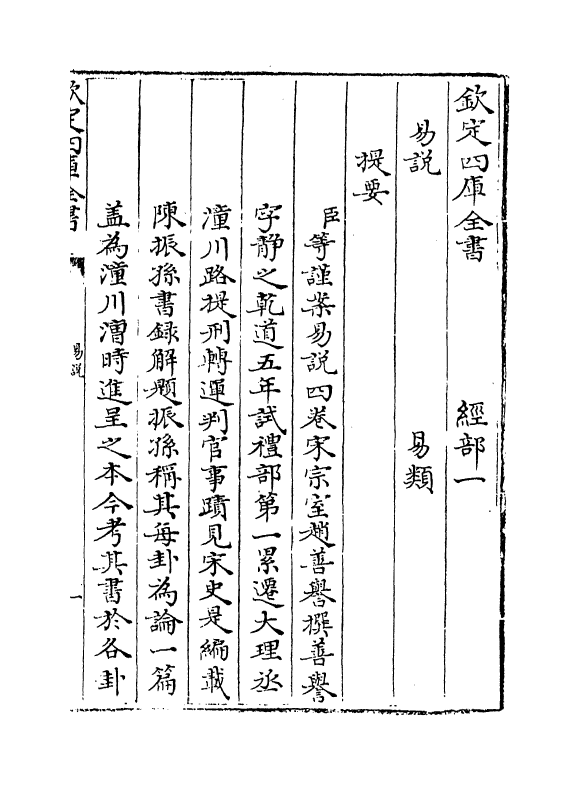 欽定四庫全書　經部一
易説　易類
提要
臣等謹案易説四卷宋宗室趙善譽撰善譽
字静之乾道五年試禮部第一累遷大理丞
潼川路提刑轉運判官事蹟見宋史是編載
陳振孫書録解題振孫稱其每卦為論一篇
蓋為潼川漕時進呈之本今考其書於各卦
欽定四庫全書
易説
一